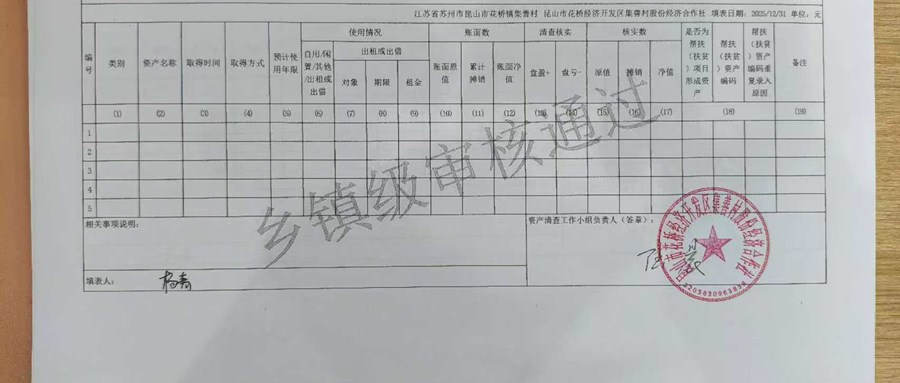 江苏省苏州市昆山市花桥镇集善村 昆山市花桥经济开发区集善村股份经济合作社 填表日期：2025/12/31 单位：元
编号 类别 资产名称 取得时间 取得方式 预计使用年限 使用情况 账面数 清查核实 核实数 是否为帮扶（扶贫）项目形成资产 帮扶（扶贫）资产编码 帮扶（扶贫）资产编码重复录入原因 备注
自用/闲置/其他/出租或出借 出租或出借 账面原值 累计摊销 账面净值 盘盈+ 盘亏- 原值 摊销 净值
对象 期限 租金
(1) (2) (3) (4) (5) (6) (7) (8) (9) (10) (11) (12) (13) (14) (15) (16) (17) (18) (19)
1
2
3
4
5
乡镇级审核通过
相关事项说明：
资产清查工作小组负责人（签章）：
昆山市花桥经济开发区集善村股份经济合作社
填表人： 杨青